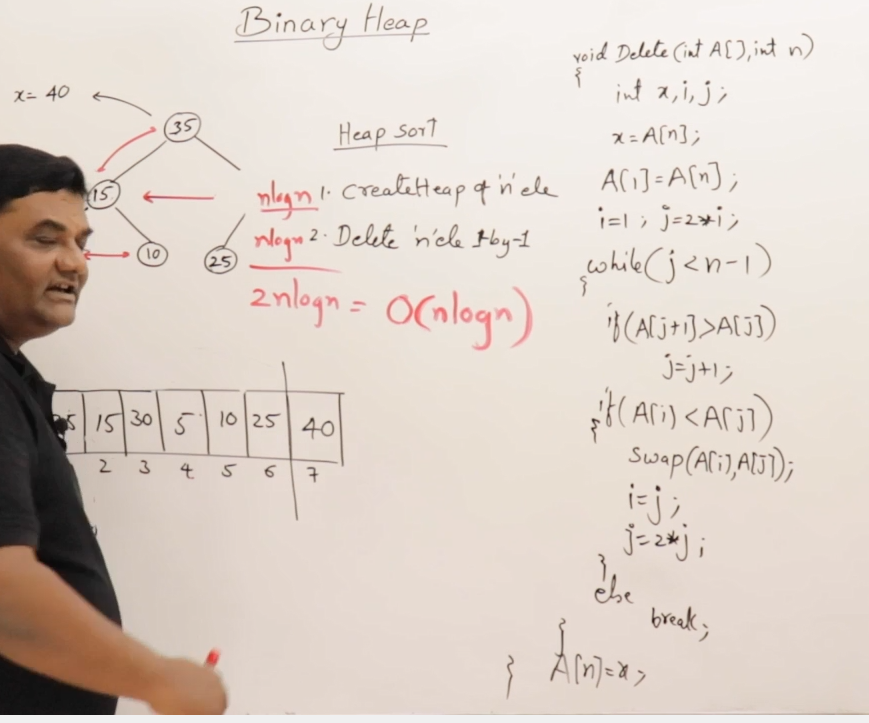 Binary Heap
x= 40
35
15
10
25
Heap Sort
nlogn 1. Create Heap of 'n' ele
nlogn 2. Delete 'n' ele 1-by-1
2nlogn = O(nlogn)
5 15 30 5 10 25 40
2 3 4 5 6 7
void Delete(int A[],int n)
{
int x,i,j;
x=A[n];
A[1]=A[n];
i=1; j=2*i;
while(j<n-1)
{
if(A[j+1]>A[j])
j=j+1;
if(A[i]<A[j])
{
Swap(A[i],A[j]);
i=j;
j=2*j;
}
else
break;
}
A[n]=x;
}